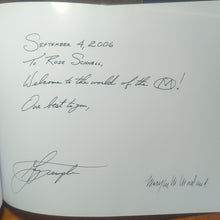 September 4, 2006
To Rose Schnell,
Welcome to the world of the M!
Our best to you,